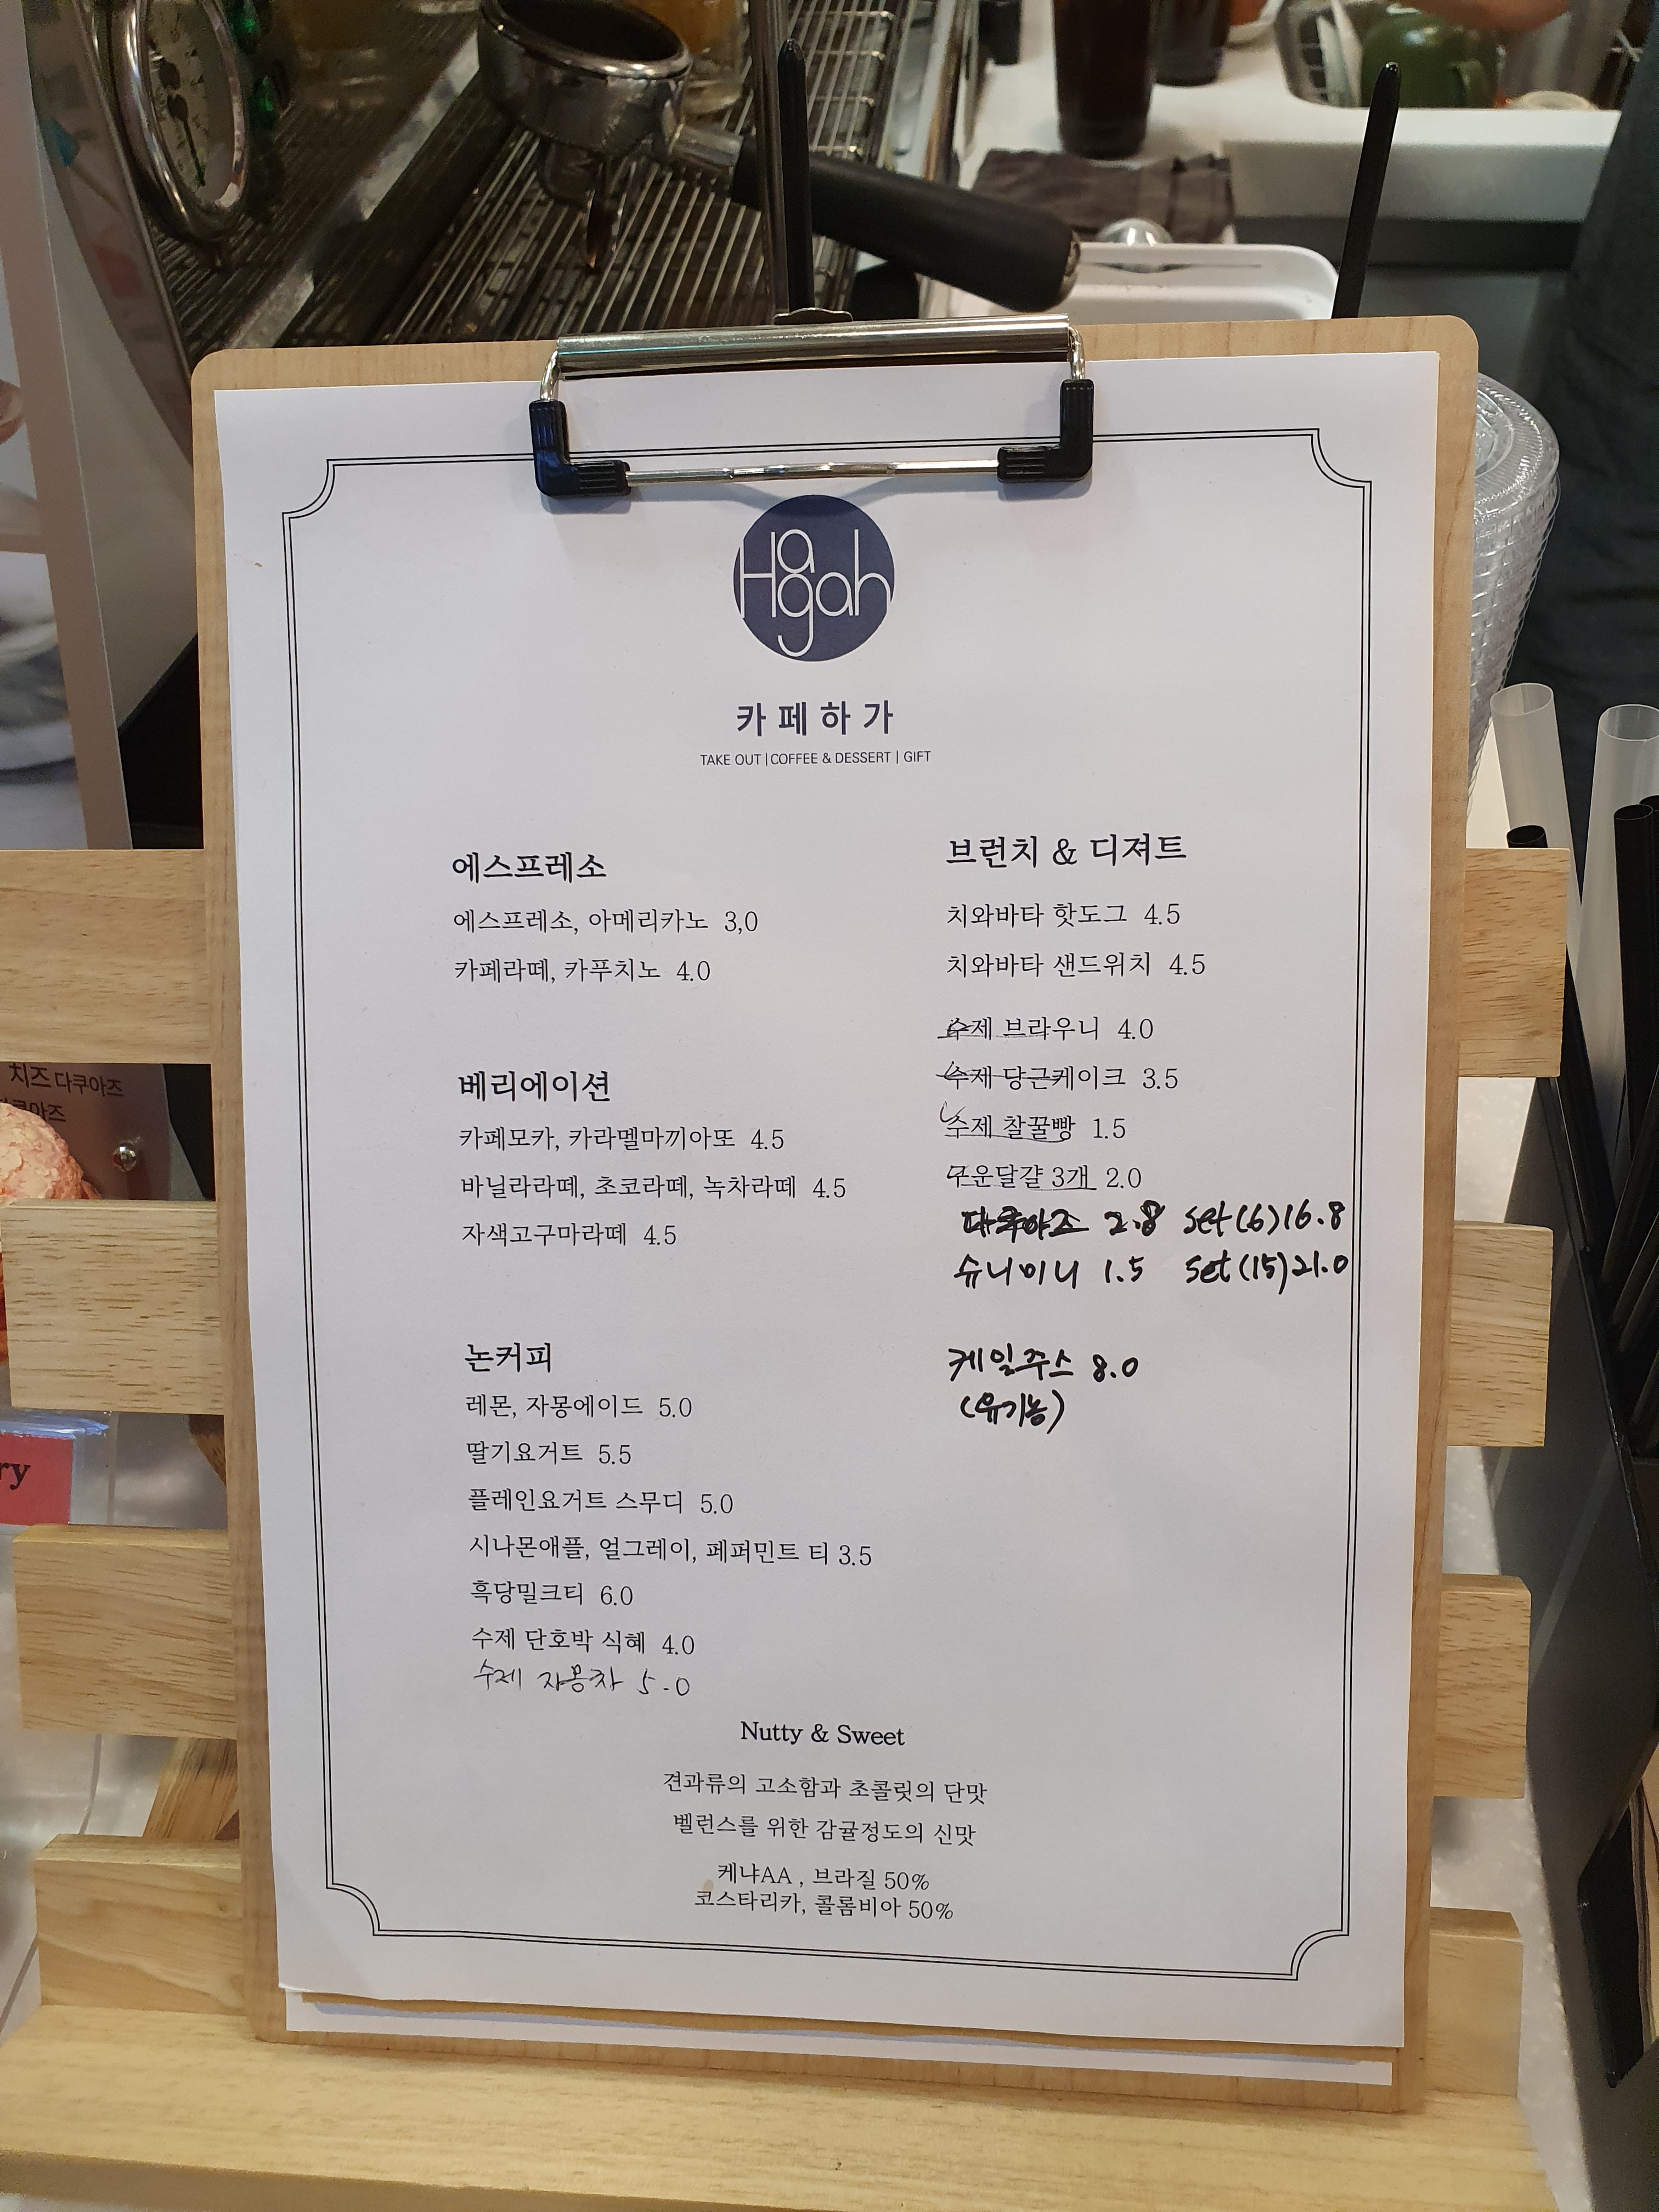 Hagah
카페하가
TAKE OUT | COFFEE & DESSERT | GIFT
에스프레소
에스프레소, 아메리카노 3,0
카페라떼, 카푸치노 4.0
베리에이션
카페모카, 카라멜마끼아또 4.5
바닐라라떼, 초코라떼, 녹차라떼 4.5
자색고구마라떼 4.5
논커피
레몬, 자몽에이드 5.0
딸기요거트 5.5
플레인요거트 스무디 5.0
시나몬애플, 얼그레이, 페퍼민트 티 3.5
흑당밀크티 6.0
수제 단호박 식혜 4.0
수제 자몽차 5.0
브런치 & 디져트
치와바타 핫도그 4.5
치와바타 샌드위치 4.5
수제 브라우니 4.0
수제 당근케이크 3.5
수제 찰꿀빵 1.5
구운달걀 3개 2.0
다쿠아즈 2.8 set(6)16.8
슈니미니 1.5 set(15)21.0
케일주스 8.0
(유기농)
Nutty & Sweet
견과류의 고소함과 초콜릿의 단맛
벨런스를 위한 감귤정도의 신맛
케냐AA , 브라질 50%
코스타리카, 콜롬비아 50%
치즈 다쿠아즈
쿠아즈
ry